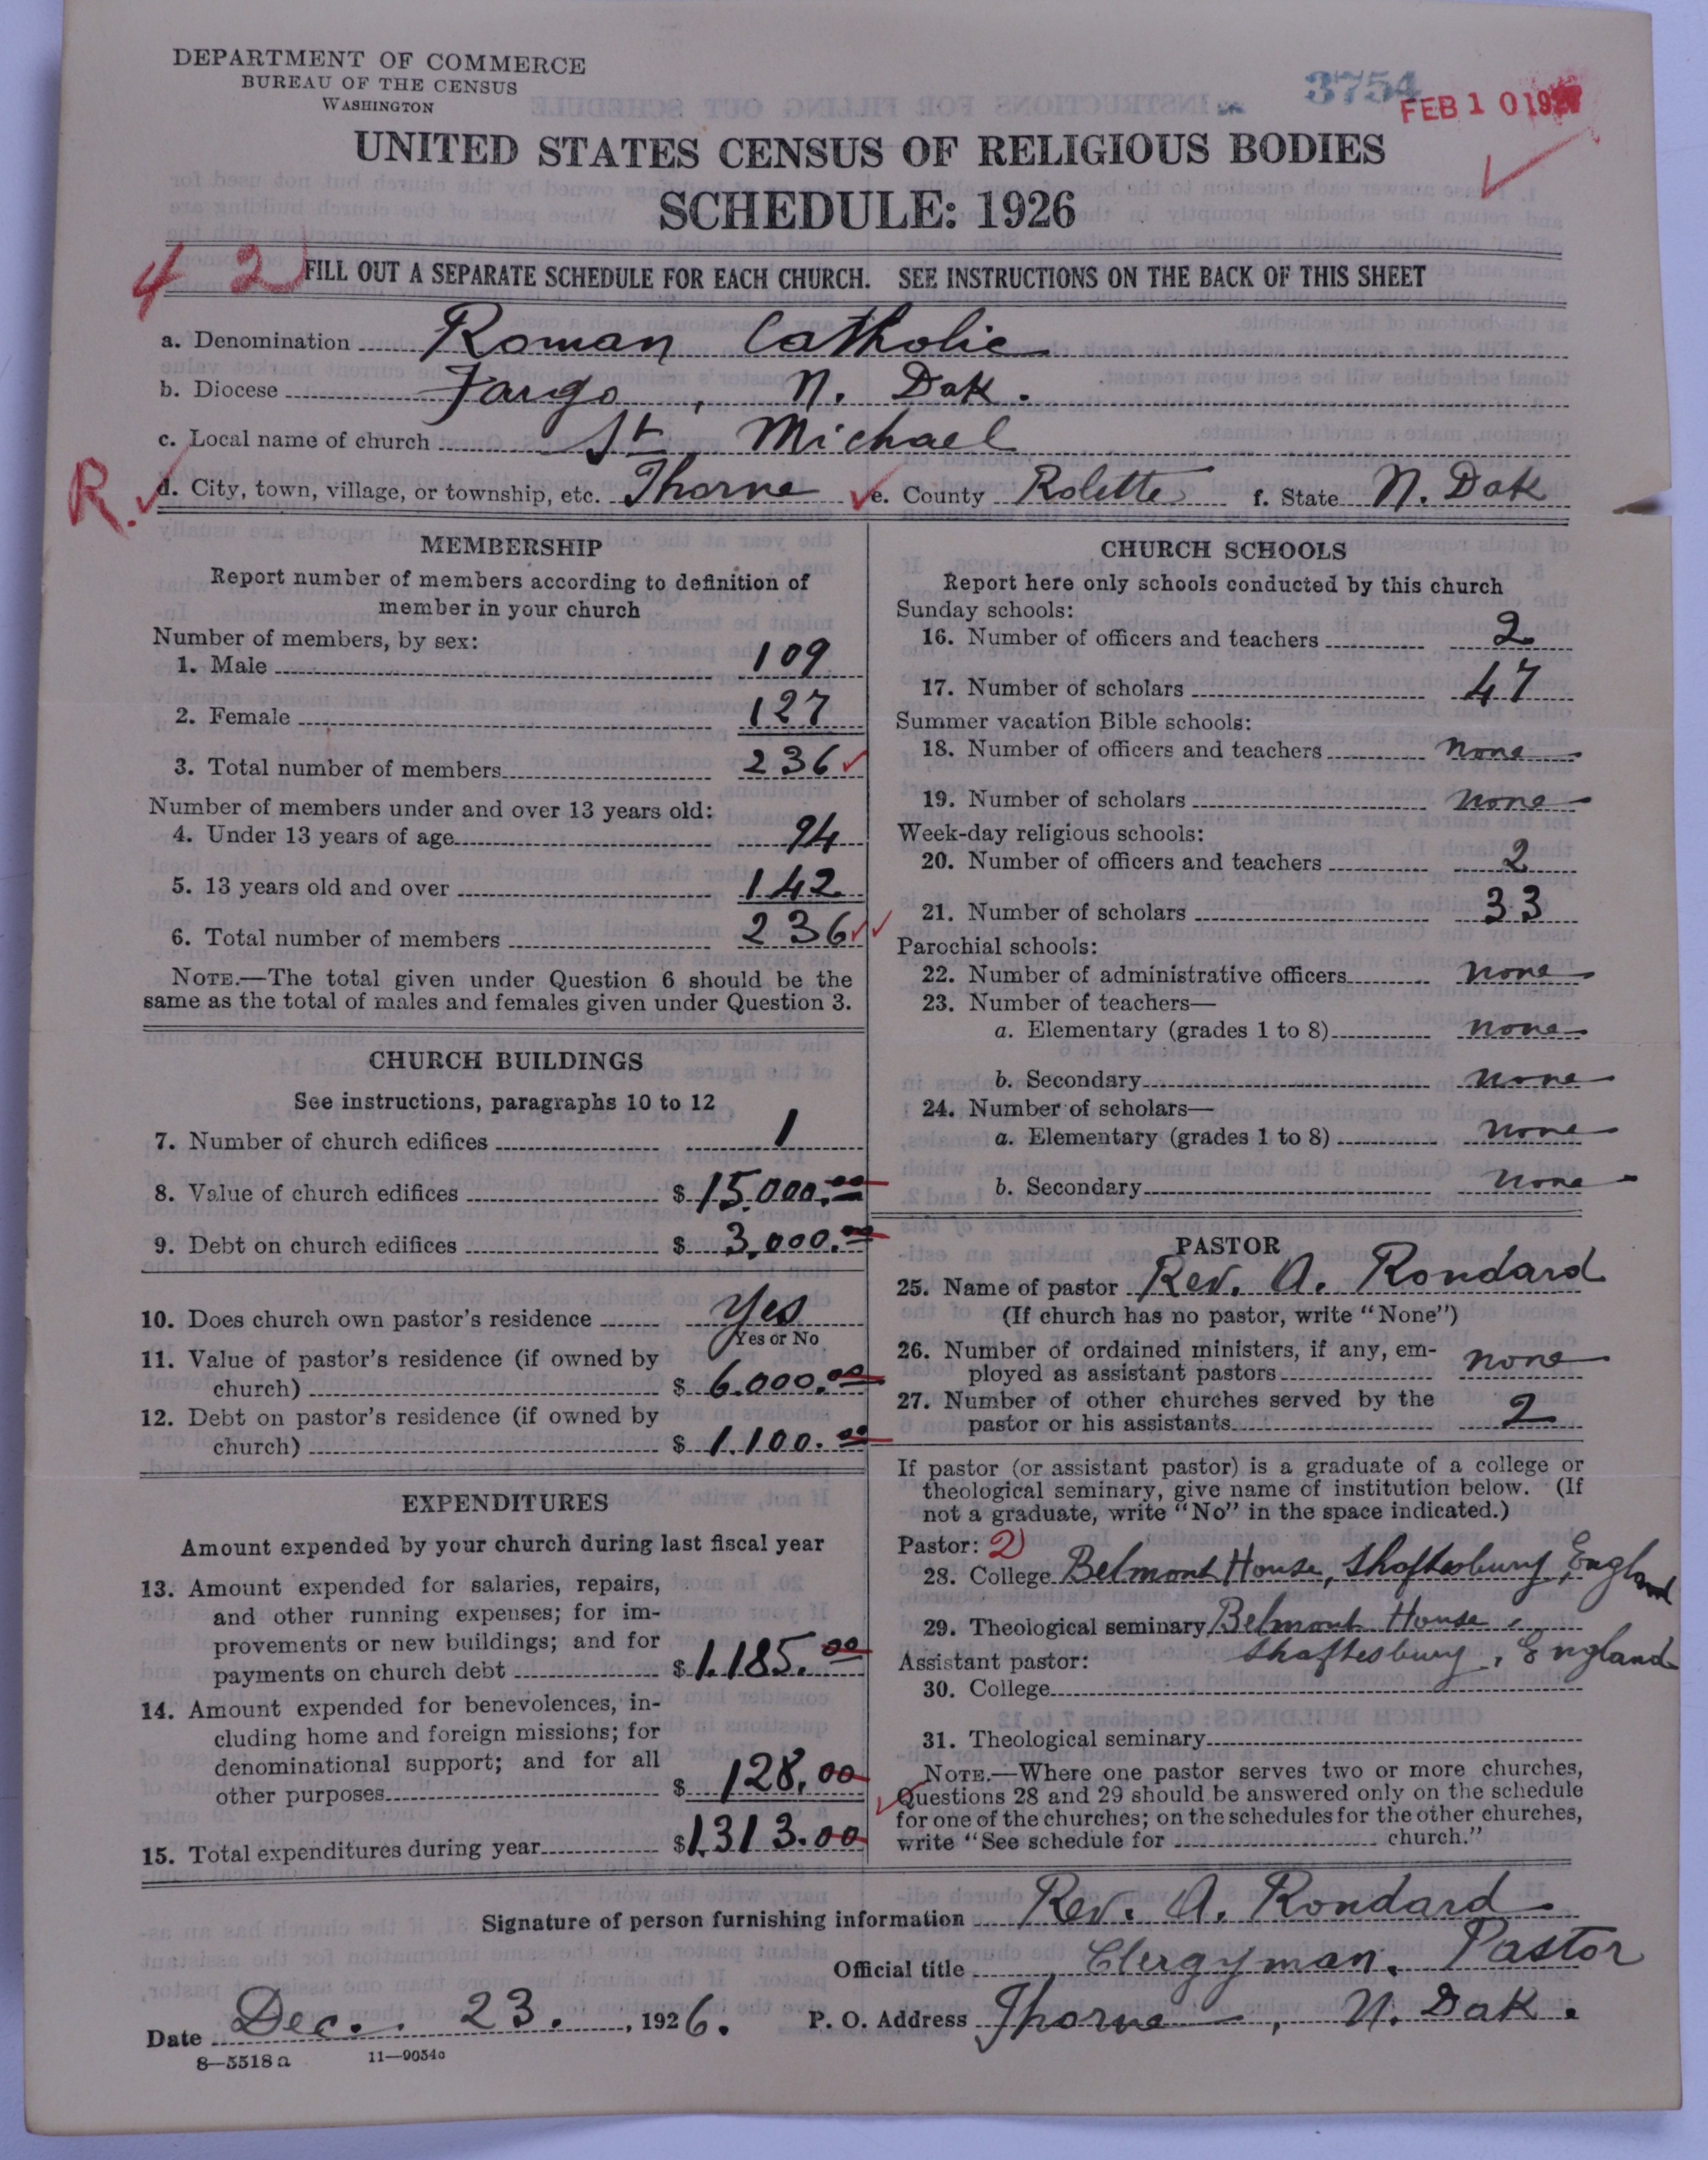 DEPARTMENT OF COMMERCE
BUREAU OF THE CENSUS
WASHINGTON
3754
FEB 10 1927
UNITED STATES CENSUS OF RELIGIOUS BODIES
SCHEDULE: 1926
4 2
FILL OUT A SEPARATE SCHEDULE FOR EACH CHURCH. SEE INSTRUCTIONS ON THE BACK OF THIS SHEET
a. Denomination Roman Catholic
b. Diocese Fargo, N. Dak.
c. Local name of church St Michael
R. d. City, town, village, or township, etc. Thorne e. County Rolette f. State N. Dak
MEMBERSHIP
Report number of members according to definition of
member in your church
Number of members, by sex:
1. Male 109
2. Female 127
3. Total number of members 236
Number of members under and over 13 years old:
4. Under 13 years of age 94
5. 13 years old and over 142
6. Total number of members 236
NOTE.—The total given under Question 6 should be the
same as the total of males and females given under Question 3.
CHURCH BUILDINGS
See instructions, paragraphs 10 to 12
7. Number of church edifices 1
8. Value of church edifices $ 15.000.00
9. Debt on church edifices $ 3,000.00
10. Does church own pastor's residence Yes
Yes or No
11. Value of pastor's residence (if owned by
church) $ 6.000.00
12. Debt on pastor's residence (if owned by
church) $ 1.100.00
EXPENDITURES
Amount expended by your church during last fiscal year
13. Amount expended for salaries, repairs,
and other running expenses; for im-
provements or new buildings; and for
payments on church debt $ 1.185.00
14. Amount expended for benevolences, in-
cluding home and foreign missions; for
denominational support; and for all
other purposes $ 128.00
15. Total expenditures during year $ 1.313.00
CHURCH SCHOOLS
Report here only schools conducted by this church
Sunday schools:
16. Number of officers and teachers 2
17. Number of scholars 47
Summer vacation Bible schools:
18. Number of officers and teachers none
19. Number of scholars none
Week-day religious schools:
20. Number of officers and teachers 2
21. Number of scholars 33
Parochial schools:
22. Number of administrative officers none
23. Number of teachers—
a. Elementary (grades 1 to 8) none
b. Secondary none
24. Number of scholars—
a. Elementary (grades 1 to 8) none
b. Secondary none
PASTOR
25. Name of pastor Rev. A. Rondard
(If church has no pastor, write "None")
26. Number of ordained ministers, if any, em-
ployed as assistant pastors none
27. Number of other churches served by the
pastor or his assistants 2
If pastor (or assistant pastor) is a graduate of a college or
theological seminary, give name of institution below. (If
not a graduate, write "No" in the space indicated.)
Pastor: 2
28. College Belmont House, Shaftesbury, England
29. Theological seminary Belmont House,
Shaftesbury, England
Assistant pastor:
30. College
31. Theological seminary
NOTE.—Where one pastor serves two or more churches,
Questions 28 and 29 should be answered only on the schedule
for one of the churches; on the schedules for the other churches,
write "See schedule for church."
Signature of person furnishing information Rev. A. Rondard
Official title Clergyman. Pastor
Date Dec. 23. , 1926. P. O. Address Thorne, N. Dak.
8—5518 a 11—9054c